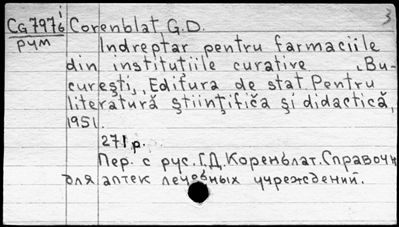 CG 7976 i Corenblat G.D. 3
рум Indreptar pentru farmaciile
din institutiile curative. Bu-
cureşti, Editura de stat Pentru
literatură ştiinţifică şi didactică,
1951.
271 p.
Пер. с рус. Г.Д. Коренблат. Справочн
для аптек лечебных учреждений.